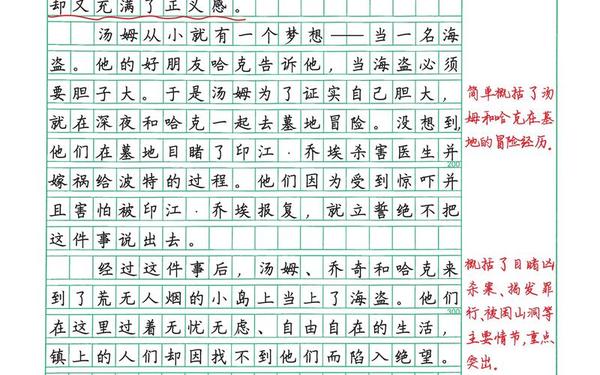 却又充满了正义感。
汤姆从小就有一个梦想——当一名海
盗。他的好朋友哈克告诉他，当海盗必须
要胆子大。于是汤姆为了证实自己胆大，
就在深夜和哈克一起去墓地冒险。没想到，
他们在墓地目睹了印江·乔埃杀害医生并
200
嫁祸给波特的过程。他们因为受到惊吓并
且害怕被印江·乔埃报复，就立誓绝不把
这件事说出去。
经过这件事后，汤姆、乔奇和哈克来
到了荒无人烟的小岛上当上了海盗。他们
300
在这里过着无忧无虑、自由自在的生活，
镇上的人们却因找不到他们而陷入绝望。
简单概括了汤
姆和哈克在墓
地的冒险经历。
概括了目睹凶
杀案、揭发罪
行、被困山洞等
主要情节，重点
突出。